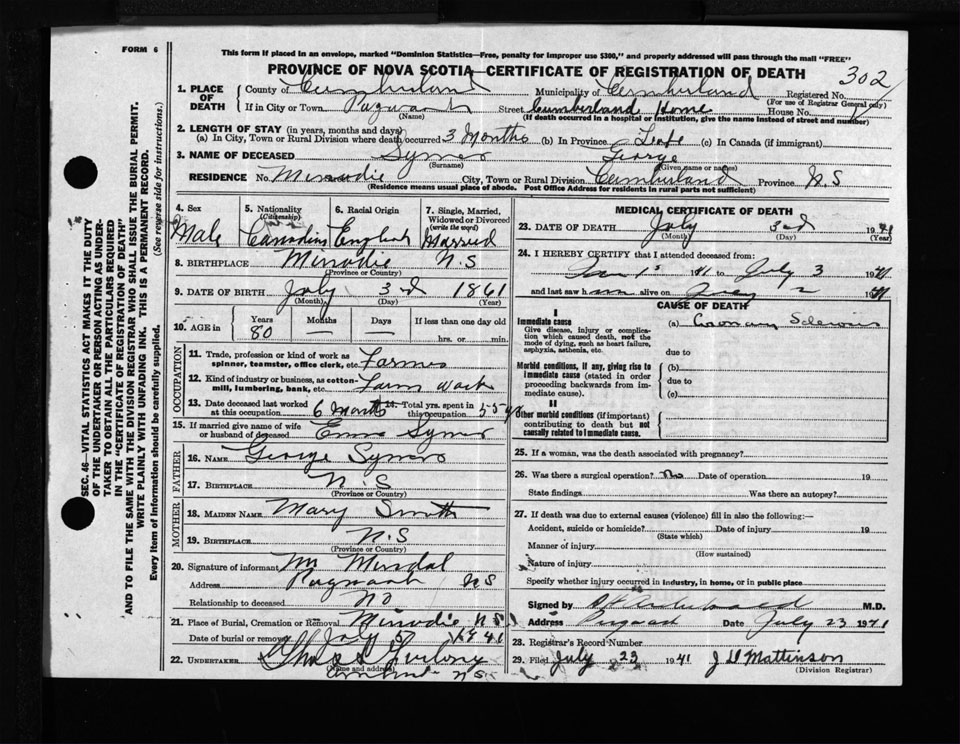 FORM 6
This form if placed in an envelope, marked "Dominion Statistics—Free, penalty for improper use $300," and properly addressed will pass through the mail "FREE"
PROVINCE OF NOVA SCOTIA—CERTIFICATE OF REGISTRATION OF DEATH 302
1. PLACE OF DEATH County of Cumberland Municipality of Cumberland Registered No.
(For use of Registrar General only)
If in City or Town Pugwash Street Cumberland Home House No.
(Name) (If death occurred in a hospital or institution, give the name instead of street and number)
2. LENGTH OF STAY (in years, months and days)
(a) In City, Town or Rural Division where death occurred 3 Months (b) In Province Life (c) In Canada (if immigrant)
3. NAME OF DECEASED George
(Surname) (Given name or names)
RESIDENCE No. Minudie City, Town or Rural Division Cumberland Province N.S
(Residence means usual place of abode. Post Office Address for residents in rural parts not sufficient)
4. Sex 5. Nationality (Citizenship) 6. Racial Origin 7. Single, Married, Widowed or Divorced (write the word)
Male Canadian English Married
8. BIRTHPLACE Minudie N.S
(Province or Country)
9. DATE OF BIRTH July 3rd 1861
(Month) (Day) (Year)
10. AGE in Years Months Days If less than one day old
80 hrs. or min.
OCCUPATION
11. Trade, profession or kind of work as spinner, teamster, office clerk, etc. Farmer
12. Kind of industry or business, as cotton-mill, lumbering, bank, etc. Farm work
13. Date deceased last worked at this occupation 6 Months 14. Total yrs. spent in this occupation 55 yrs
15. If married give name of wife or husband of deceased
FATHER
16. NAME George
17. BIRTHPLACE N.S
(Province or Country)
MOTHER
18. MAIDEN NAME Mary Smith
19. BIRTHPLACE N.S
(Province or Country)
20. Signature of informant
Address Pugwash N S
Relationship to deceased No
21. Place of Burial, Cremation or Removal Minudie N S
Date of burial or removal July 5 1941
22. UNDERTAKER
(Name and address)
N.S.
MEDICAL CERTIFICATE OF DEATH
23. DATE OF DEATH July 3rd 1941
(Month) (Day) (Year)
24. I HEREBY CERTIFY that I attended deceased from:
Jan 1st 41 to July 3 1941
and last saw him alive on July 2 1941
CAUSE OF DEATH
I
Immediate cause (a) Coronary Sclerosis
Give disease, injury or complication which caused death, not the mode of dying, such as heart failure, asphyxia, asthenia, etc.
due to
Morbid conditions, if any, giving rise to immediate cause (stated in order proceeding backwards from immediate cause).
(b)
due to
(c)
II
Other morbid conditions (if important) contributing to death but not causally related to immediate cause.
25. If a woman, was the death associated with pregnancy?
26. Was there a surgical operation? No Date of operation 19
State findings Was there an autopsy?
27. If death was due to external causes (violence) fill in also the following:—
Accident, suicide or homicide? Date of injury 19
(State which)
Manner of injury
(How sustained)
Nature of injury
Specify whether injury occurred in industry, in home, or in public place
Signed by Archibald M.D.
Address Pugwash Date July 23 1941
28. Registrar's Record Number
29. Filed July 23 1941 J D Mattinson
(Division Registrar)
SEC. 46—VITAL STATISTICS ACT MAKES IT THE DUTY
OF THE UNDERTAKER OR PERSON ACTING AS UNDER-
TAKER TO OBTAIN ALL THE PARTICULARS REQUIRED
IN THE "CERTIFICATE OF REGISTRATION OF DEATH"
AND TO FILE THE SAME WITH THE DIVISION REGISTRAR WHO SHALL ISSUE THE BURIAL PERMIT.
WRITE PLAINLY WITH UNFADING INK. THIS IS A PERMANENT RECORD.
Every item of information should be carefully supplied. (See reverse side for instructions.)